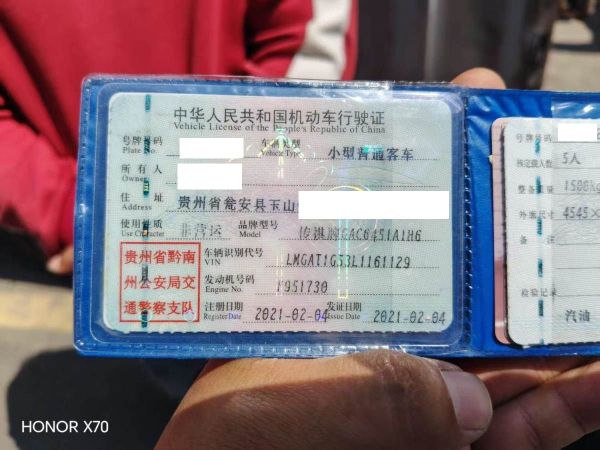 中华人民共和国机动车行驶证
Vehicle License of the People's Republic of China
号牌号码
Plate No.
车辆类型
Vehicle Type
小型普通客车
所有人
Owner
住址
Address
贵州省瓮安县玉山
使用性质
Use Character
非营运
品牌型号
Model
传祺牌GAC6451A1H6
车辆识别代号
VIN
LMGAT1G53L1161129
发动机号码
Engine No.
注册日期
Register Date
2021-02-04
发证日期
Issue Date
2021-02-04
贵州省黔南
州公安局交
通警察支队
号牌号码
核定载人数
5人
整备质量
1500kg
外廓尺寸
4545×
备注
检验记录
汽油
HONOR X70